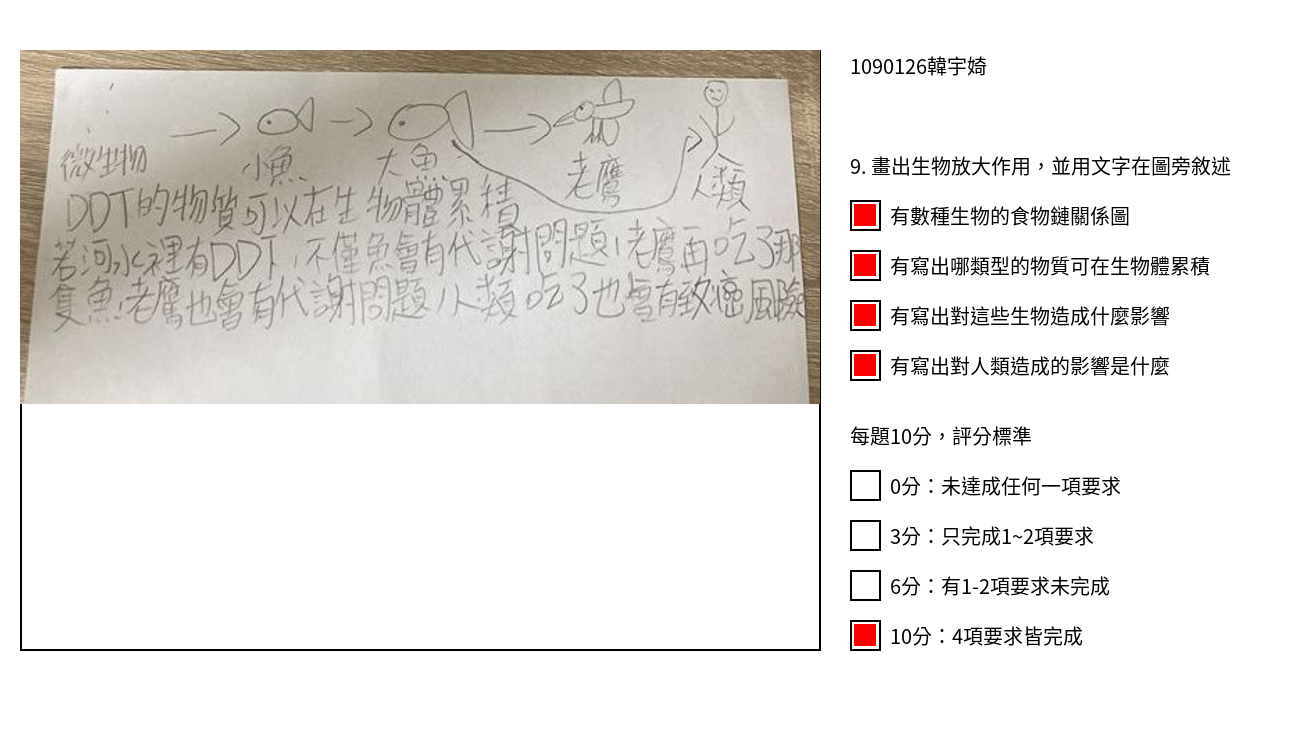 微生物 小魚 大魚 老鷹 人類
DDT的物質可以在生物體累積
若河水裡有DDT,不僅魚會有代謝問題,老鷹再吃了那
隻魚,老鷹也會有代謝問題,人類吃了也會有致癌風險
1090126韓宇婍
9. 畫出生物放大作用,並用文字在圖旁敘述
有數種生物的食物鏈關係圖
有寫出哪類型的物質可在生物體累積
有寫出對這些生物造成什麼影響
有寫出對人類造成的影響是什麼
每題10分,評分標準
0分:未達成任何一項要求
3分:只完成1~2項要求
6分:有1-2項要求未完成
10分:4項要求皆完成